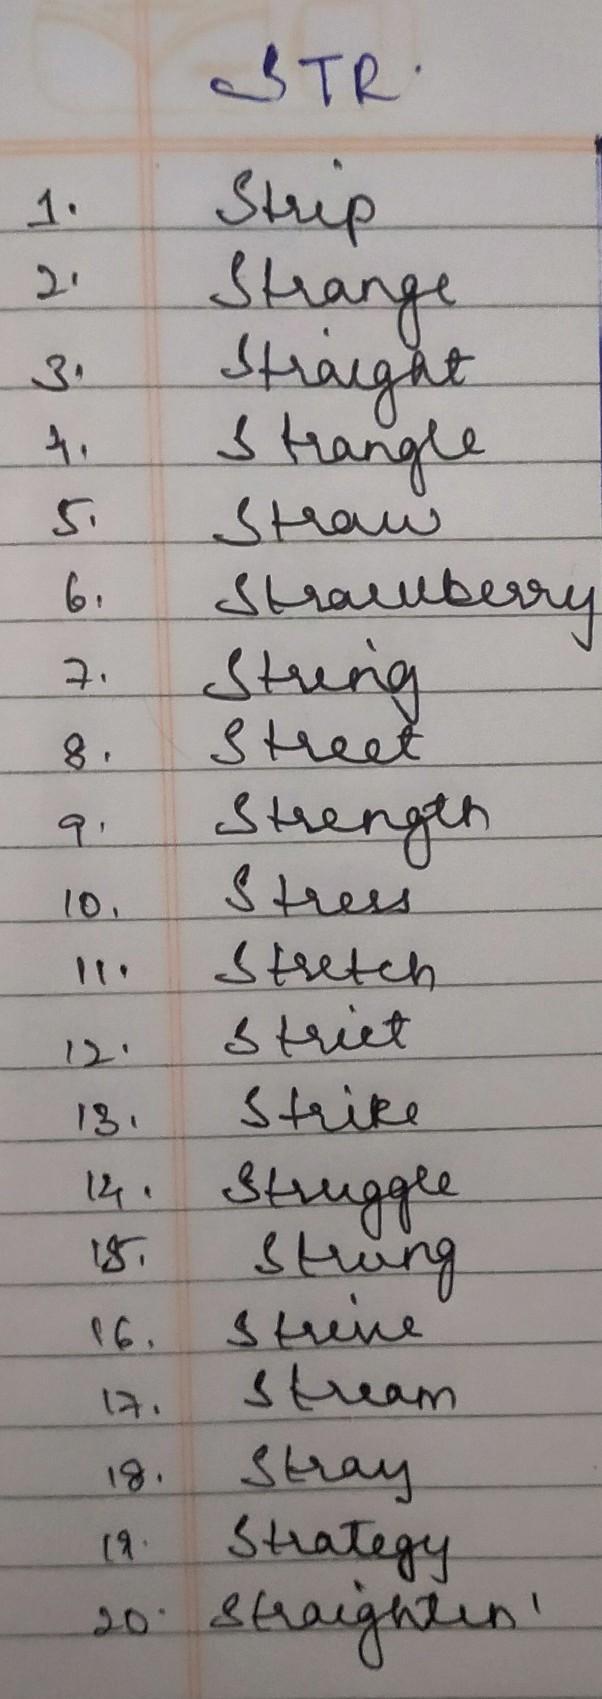 STR.
1. Strip
2. Strange
3. Straight
4. Strangle
5. Straw
6. Strawberry
7. String
8. Street
9. Strength
10. Stress
11. Stretch
12. Strict
13. Strike
14. Struggle
15. Strung
16. Strive
17. Stream
18. Stray
19. Strategy
20. Straighten